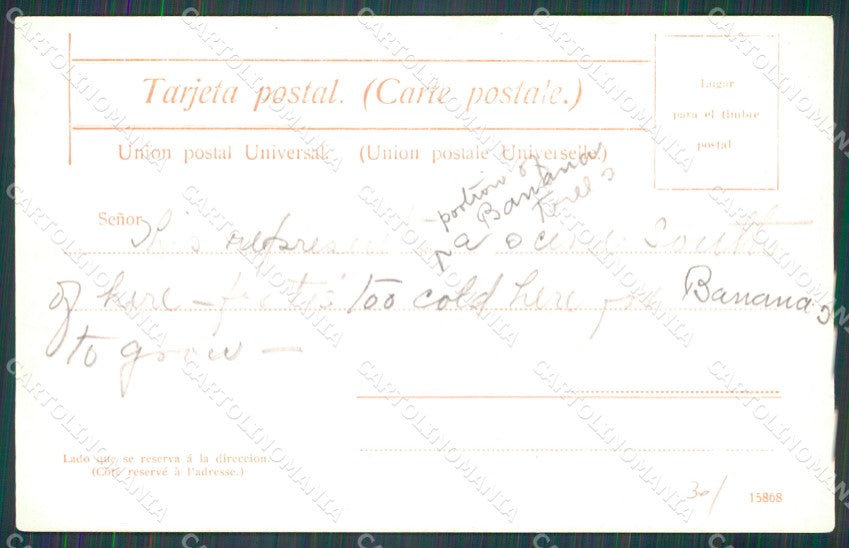 Tarjeta postal. (Carte postale.)
Union postal Universal. (Union postale Universelle.)
Lugar
para el timbre
postal
Señor
portion of
Banana
Trees
This represents a scene South
of here – for it's too cold here for Bananas
to grow –
Lado que se reserva á la direccion.
(Côté reservé à l'adresse.)
30/
15868
CARTOLINOMANIA